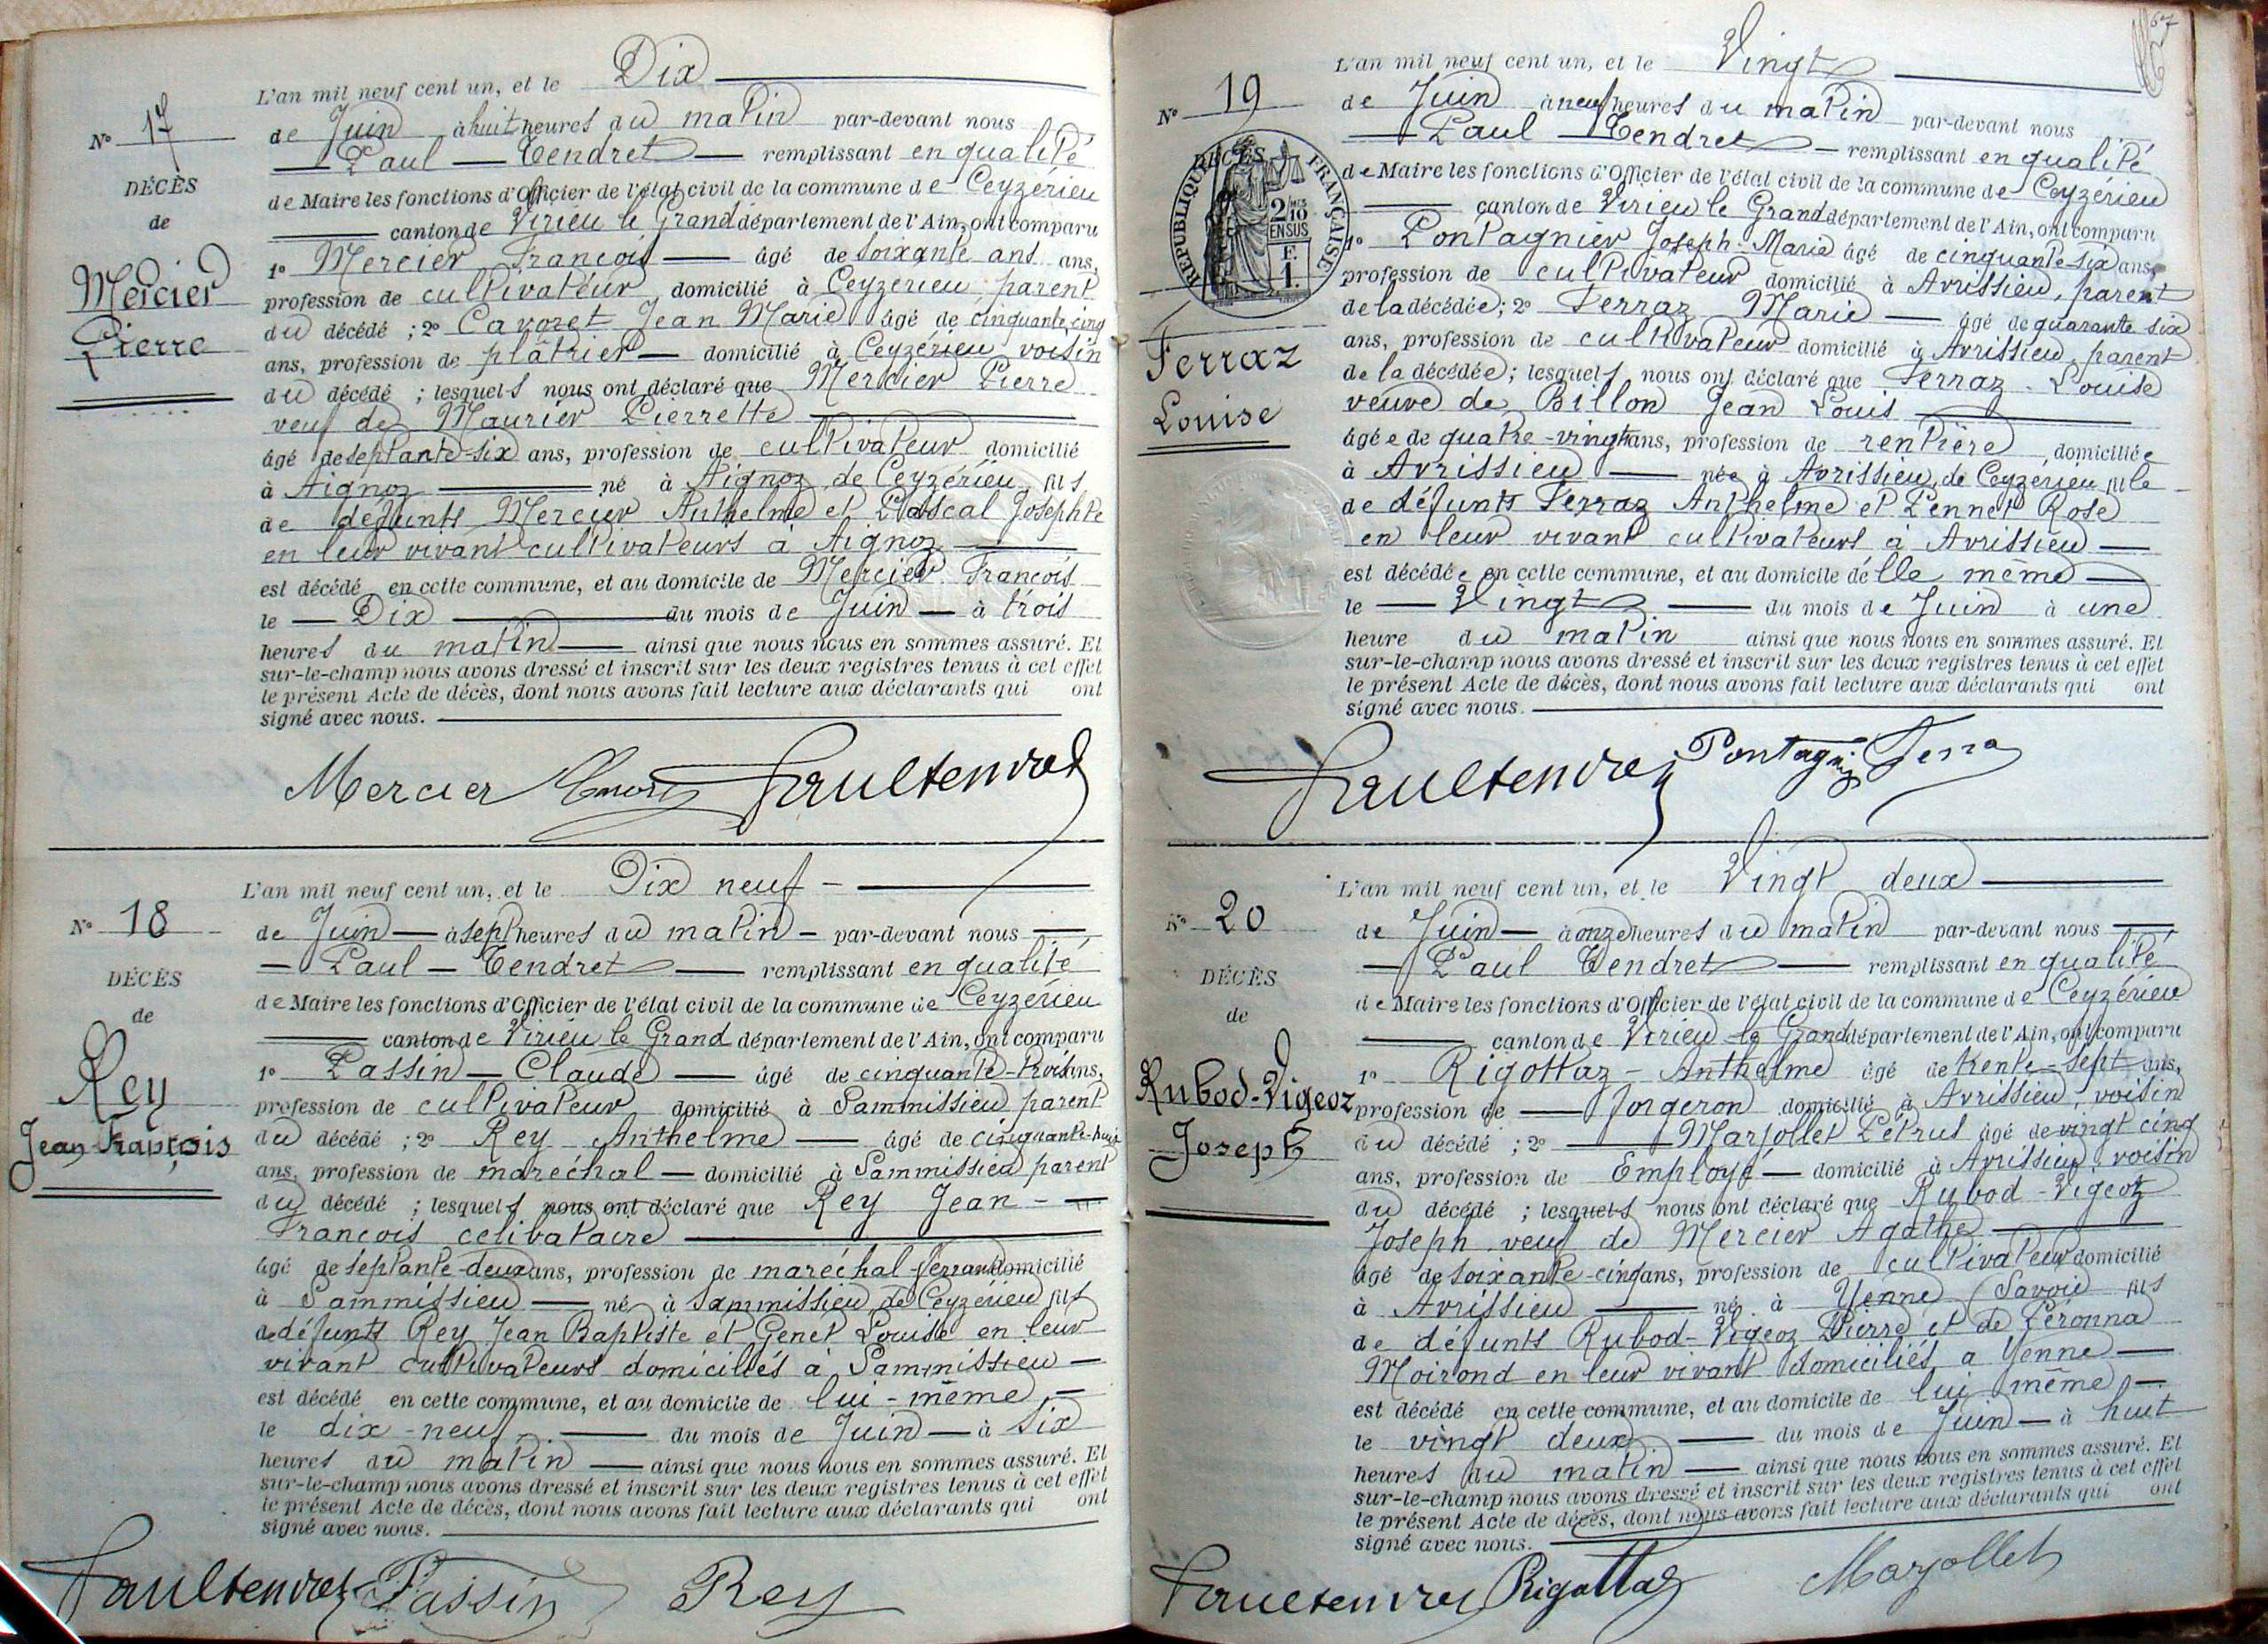 L'an mil neuf cent un, et le Dix
N° 17
de Juin à huit heures du matin par-devant nous
Paul Tendret remplissant en qualité
DÉCÈS
de Maire les fonctions d'Officier de l'état civil de la commune de Ceyzérieu
de
canton de Virieu le Grand département de l'Ain, ont comparu
1° Mercier François âgé de soixante ans ans,
Mercier
profession de cultivateur domicilié à Ceyzérieu parent
Pierre
du décédé ; 2° Cavoret Jean Marie âgé de cinquante cinq
ans, profession de plâtrier domicilié à Ceyzérieu voisin
du décédé ; lesquels nous ont déclaré que Mercier Pierre
veuf de Maurier Pierrette
âgé de septante-six ans, profession de cultivateur domicilié
à Aignoz né à Aignoz de Ceyzérieu fils
de defunts Mercier Anthelme et Pascal Josephte
en leur vivant cultivateurs à Aignoz
est décédé en cette commune, et au domicile de Mercier François
le Dix du mois de Juin à trois
heures du matin ainsi que nous nous en sommes assuré. Et
sur-le-champ nous avons dressé et inscrit sur les deux registres tenus à cet effet
le présent Acte de décès, dont nous avons fait lecture aux déclarants qui ont
signé avec nous.
Mercier Paul tendret
L'an mil neuf cent un, et le Dix neuf
N° 18
de Juin à sept heures du matin par-devant nous
Paul Tendret remplissant en qualité
DÉCÈS
de Maire les fonctions d'Officier de l'état civil de la commune de Ceyzérieu
de
canton de Virieu le Grand département de l'Ain, ont comparu
Rey
1° Passin Claude âgé de cinquante-trois ans,
profession de cultivateur domicilié à Sammissieu parent
Jean François
du décédé ; 2° Rey Anthelme âgé de cinquante-huit
ans, profession de maréchal domicilié à Sammissieu parent
du décédé ; lesquels nous ont déclaré que Rey Jean
François celibataire
âgé de septante-deux ans, profession de maréchal-ferrand domicilié
à Sammissieu né à Sammissieu de Ceyzérieu fils
de défunts Rey Jean Baptiste et Genet Louise en leur
vivant cultivateurs domiciliés à Sammissieu
est décédé en cette commune, et au domicile de lui-même
le dix-neuf du mois de Juin à six
heures du matin ainsi que nous nous en sommes assuré. Et
sur-le-champ nous avons dressé et inscrit sur les deux registres tenus à cet effet
le présent Acte de décès, dont nous avons fait lecture aux déclarants qui ont
signé avec nous.
Paul tendret Passin Rey
67
L'an mil neuf cent un, et le Vingt
N° 19
de Juin à neuf heures du matin par-devant nous
Paul Tendret remplissant en qualité
DÉCÈS
RÉPUBLIQUE FRANÇAISE
2/10 MES
EN SUS
F.
1.
de Maire les fonctions d'Officier de l'état civil de la commune de Ceyzérieu
canton de Virieu le Grand département de l'Ain, ont comparu
1° Pontagnier Joseph-Marie âgé de cinquante-six ans,
profession de cultivateur domicilié à Avrissieu, parent
de la décédée ; 2° Ferraz Marie âgé de quarante six
Ferraz
ans, profession de cultivateur domicilié à Avrissieu, parent
de la décédée ; lesquels nous ont déclaré que Ferraz Louise
Louise
veuve de Billon Jean Louis
âgée de quatre-vingt ans, profession de rentière domiciliée
à Avrissieu née à Avrissieu, de Ceyzérieu fille
de défunts Ferraz Anthelme et Pennet Rose
en leur vivant cultivateurs à Avrissieu
est décédée en cette commune, et au domicile d'elle même
le Vingt du mois de Juin à une
heure du matin ainsi que nous nous en sommes assuré. Et
sur-le-champ nous avons dressé et inscrit sur les deux registres tenus à cet effet
le présent Acte de décès, dont nous avons fait lecture aux déclarants qui ont
signé avec nous.
Paul tendret Pontagnier Ferra
L'an mil neuf cent un, et le Vingt deux
N° 20
de Juin à onze heures du matin par-devant nous
Paul Tendret remplissant en qualité
DÉCÈS
de Maire les fonctions d'Officier de l'état civil de la commune de Ceyzérieu
de
canton de Virieu le Grand département de l'Ain, ont comparu
1° Rigottaz-Anthelme âgé de trente-sept ans,
Rubod-Vigeoz
profession de forgeron domicilié à Avrissieu, voisin
Joseph
du décédé ; 2° Marjollet Pétrus âgé de vingt cinq
ans, profession de Employé domicilié à Avrissieu, voisin
du décédé ; lesquels nous ont déclaré que Rubod-Vigeoz
Joseph veuf de Mercier Agathe
âgé de soixante-cinq ans, profession de cultivateur domicilié
à Avrissieu né à Yenne (Savoie fils
de défunts Rubod-Vigeoz Pierre et de Péronna
Moirond en leur vivant domiciliés a Yenne
est décédé en cette commune, et au domicile de lui même
le vingt deux du mois de Juin à huit
heures du matin ainsi que nous nous en sommes assuré. Et
sur-le-champ nous avons dressé et inscrit sur les deux registres tenus à cet effet
le présent Acte de décès, dont nous avons fait lecture aux déclarants qui ont
signé avec nous.
Paul tendret Rigottaz Marjollet